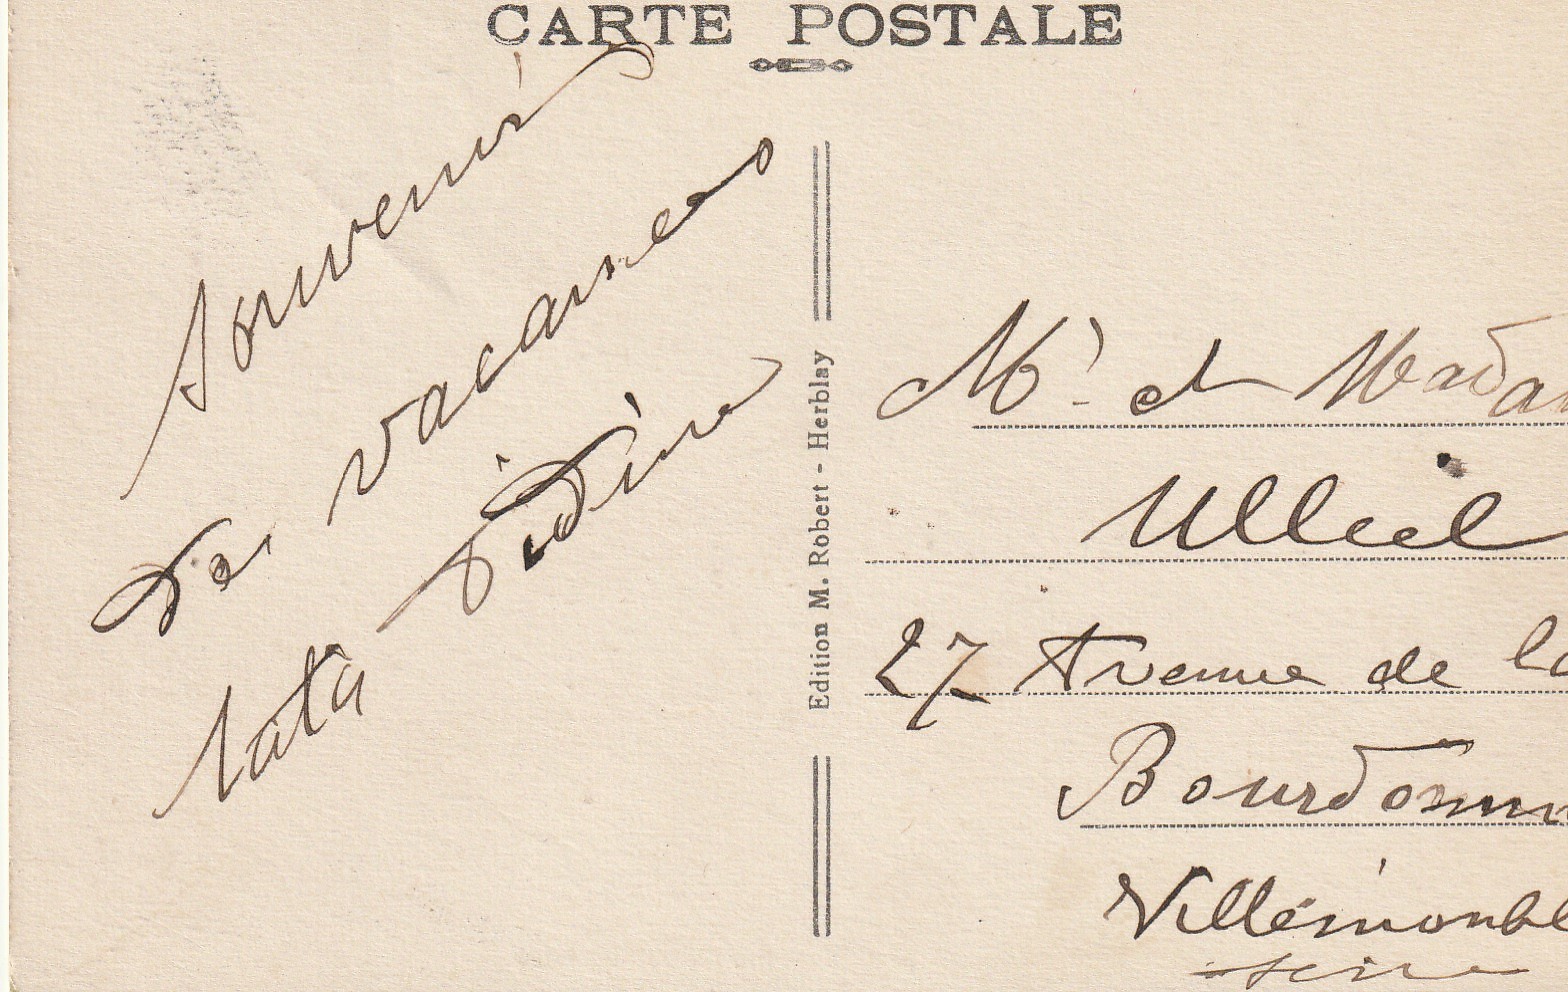 CARTE POSTALE
Souvenir
de vacances
tata
Edition M. Robert - Herblay
Mr et Madam
Ulliel
27 Avenue de la
Bourdonn
Villemombl
Seine